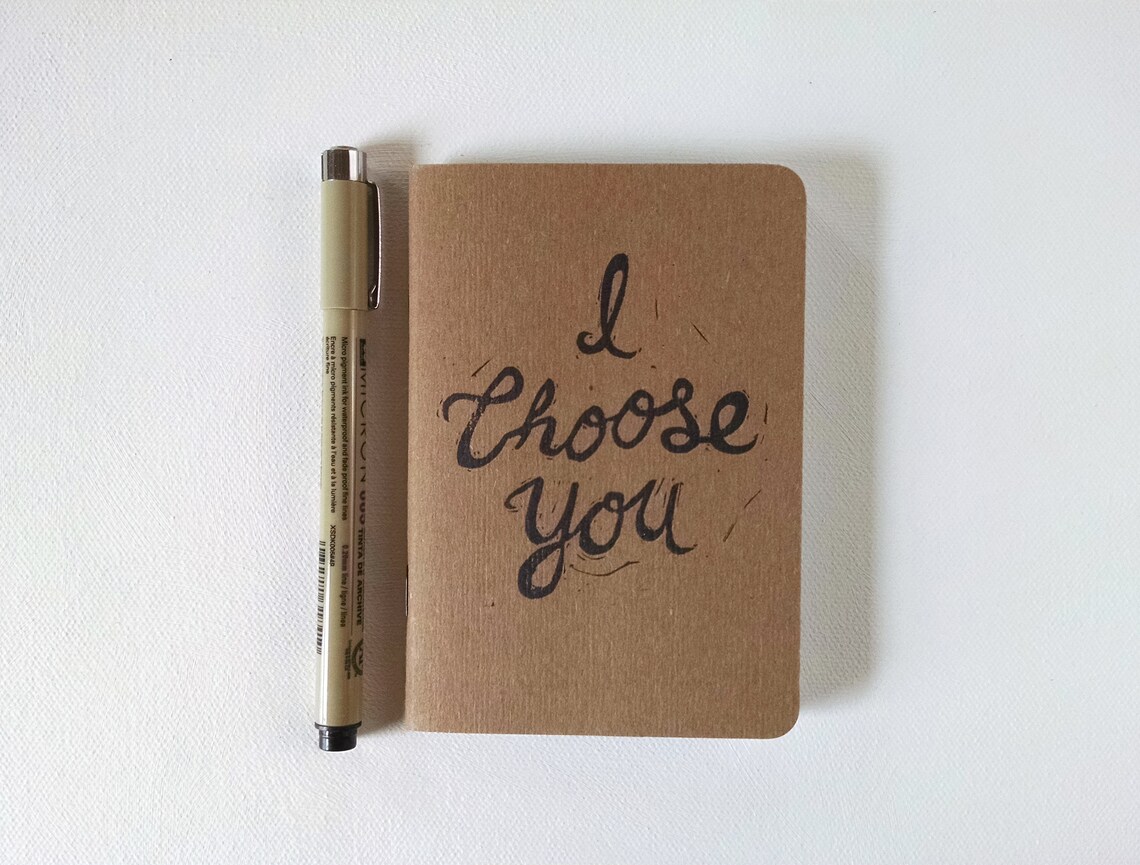 I
Choose
you
MICRON 005 TINTA DE ARCHIVE
Micro pigment ink for waterproof and fade proof fine lines
0.20mm line / ligne / lines
Encre à micro pigments résistante à l'eau et à la lumière
XSDK005#49
écriture fine